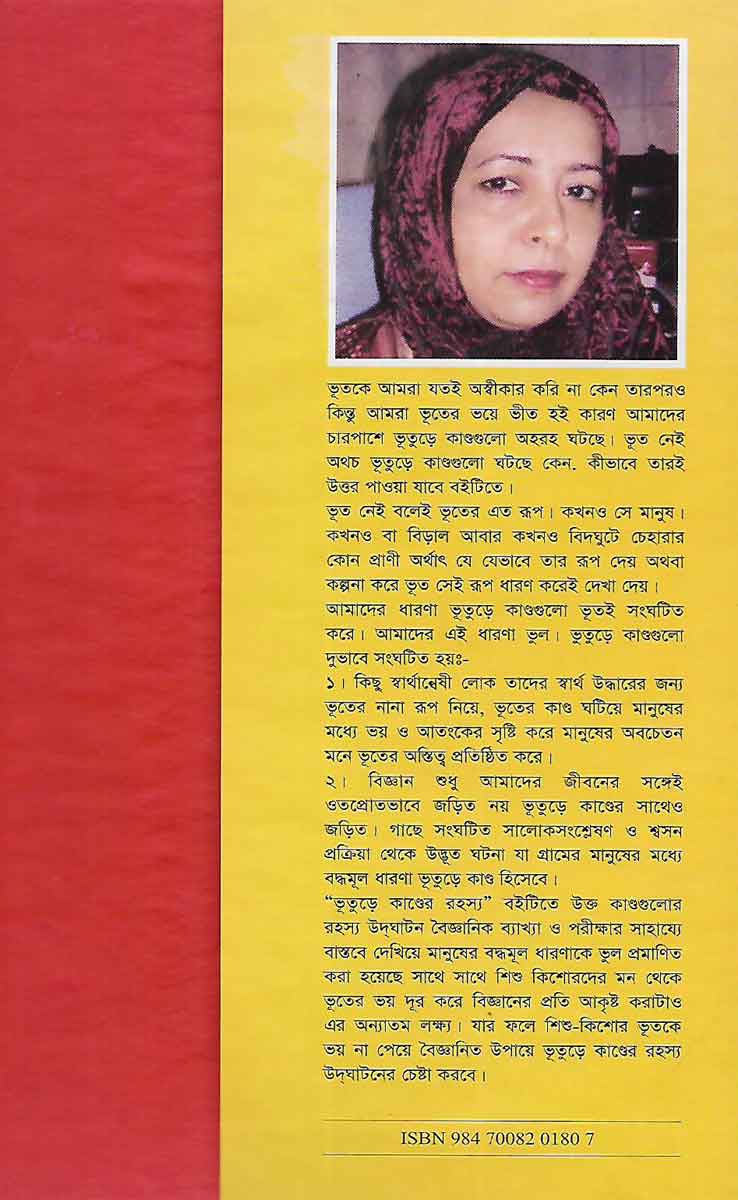 ভূতকে আমরা যতই অস্বীকার করি না কেন তারপরও
কিন্তু আমরা ভূতের ভয়ে ভীত হই কারণ আমাদের
চারপাশে ভূতুড়ে কাণ্ডগুলো অহরহ ঘটছে। ভূত নেই
অথচ ভূতুড়ে কাণ্ডগুলো ঘটছে কেন. কীভাবে তারই
উত্তর পাওয়া যাবে বইটিতে।
ভূত নেই বলেই ভূতের এত রূপ। কখনও সে মানুষ।
কখনও বা বিড়াল আবার কখনও বিদঘুটে চেহারার
কোন প্রাণী অর্থাৎ যে যেভাবে তার রূপ দেয় অথবা
কল্পনা করে ভূত সেই রূপ ধারণ করেই দেখা দেয়।
আমাদের ধারণা ভূতুড়ে কাণ্ডগুলো ভূতই সংঘটিত
করে। আমাদের এই ধারণা ভুল। ভুতুড়ে কাণ্ডগুলো
দুভাবে সংঘটিত হয়ঃ-
১। কিছু স্বার্থান্বেষী লোক তাদের স্বার্থ উদ্ধারের জন্য
ভূতের নানা রূপ নিয়ে, ভূতের কাণ্ড ঘটিয়ে মানুষের
মধ্যে ভয় ও আতংকের সৃষ্টি করে মানুষের অবচেতন
মনে ভূতের অস্তিত্ব প্রতিষ্ঠিত করে।
২। বিজ্ঞান শুধু আমাদের জীবনের সঙ্গেই
ওতপ্রোতভাবে জড়িত নয় ভূতুড়ে কাণ্ডের সাথেও
জড়িত। গাছে সংঘটিত সালোকসংশ্লেষণ ও শ্বসন
প্রক্রিয়া থেকে উদ্ভূত ঘটনা যা গ্রামের মানুষের মধ্যে
বদ্ধমূল ধারণা ভূতুড়ে কাণ্ড হিসেবে।
“ভূতুড়ে কাণ্ডের রহস্য” বইটিতে উক্ত কাণ্ডগুলোর
রহস্য উদ্‌ঘাটন বৈজ্ঞানিক ব্যাখ্যা ও পরীক্ষার সাহায্যে
বাস্তবে দেখিয়ে মানুষের বদ্ধমূল ধারণাকে ভুল প্রমাণিত
করা হয়েছে সাথে সাথে শিশু কিশোরদের মন থেকে
ভূতের ভয় দূর করে বিজ্ঞানের প্রতি আকৃষ্ট করাটাও
এর অন্যাতম লক্ষ্য। যার ফলে শিশু-কিশোর ভূতকে
ভয় না পেয়ে বৈজ্ঞানিত উপায়ে ভূতুড়ে কাণ্ডের রহস্য
উদ্‌ঘাটনের চেষ্টা করবে।
ISBN 984 70082 0180 7